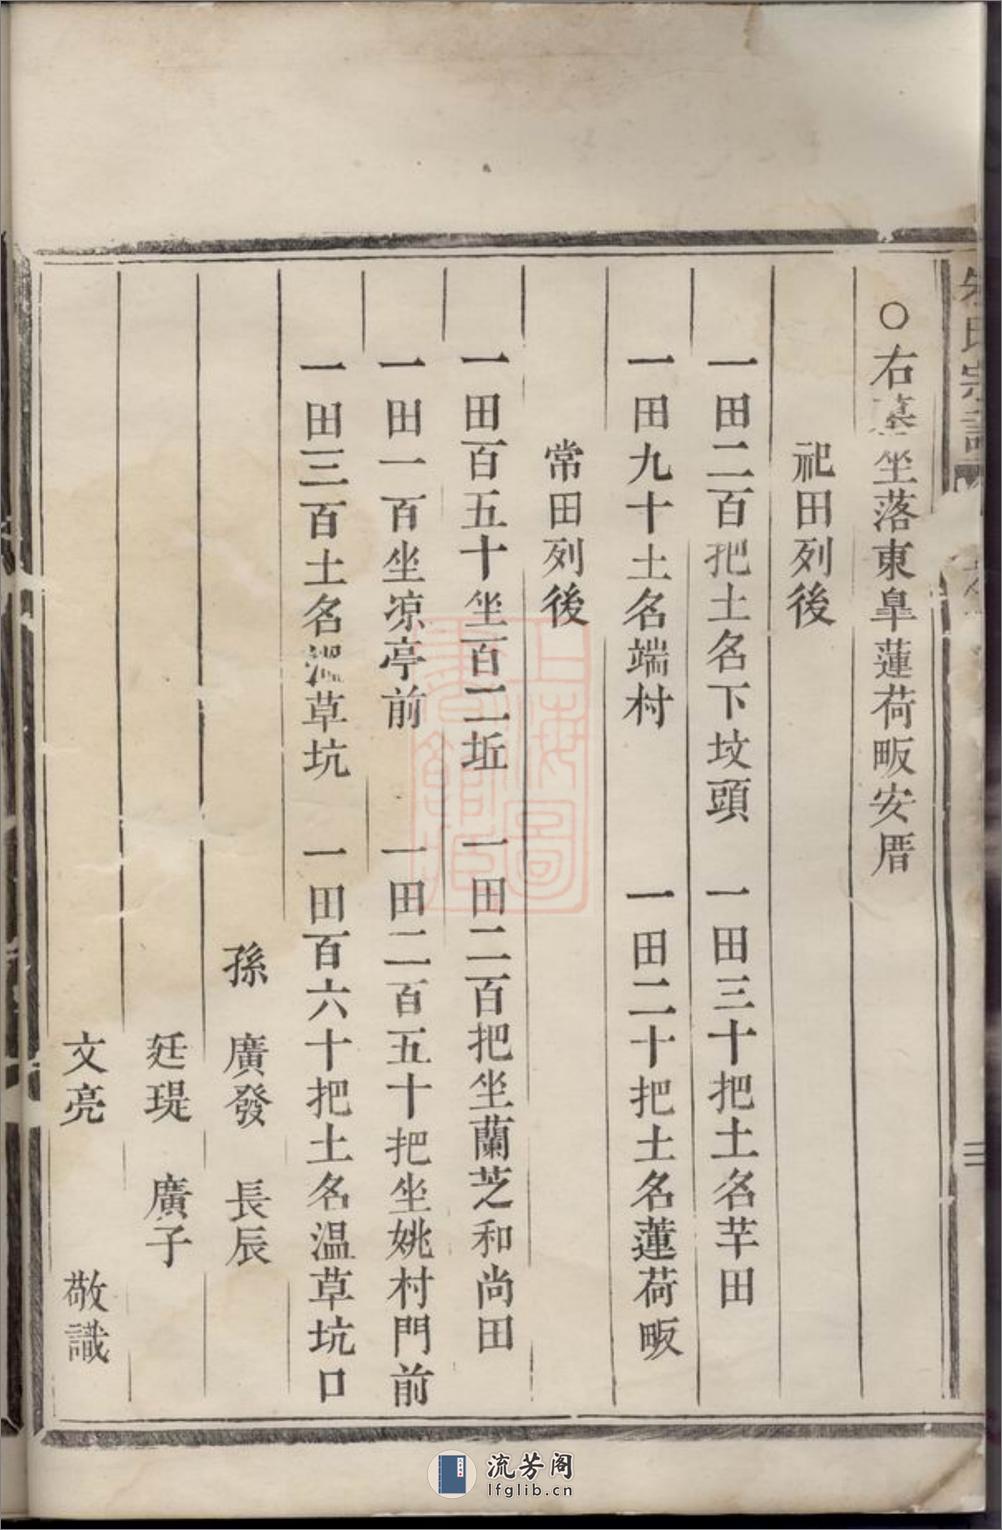 氏宗譜
○右墓坐落東皐蓮荷畈安厝
祀田列後
一田二百把土名下坟頭 一田三十把土名芋田
一田九十土名端村 一田二十把土名蓮荷畈
常田列後
一田百五十坐百二坵 一田二百把坐蘭芝和尚田
一田一百坐凉亭前 一田二百五十把坐姚村門前
一田三百土名温草坑 一田百六十把土名温草坑口
孫 廣發 長辰
廷瑅 廣子
文亮 敬識
上海圖書館藏
流芳阁
lfglib.cn